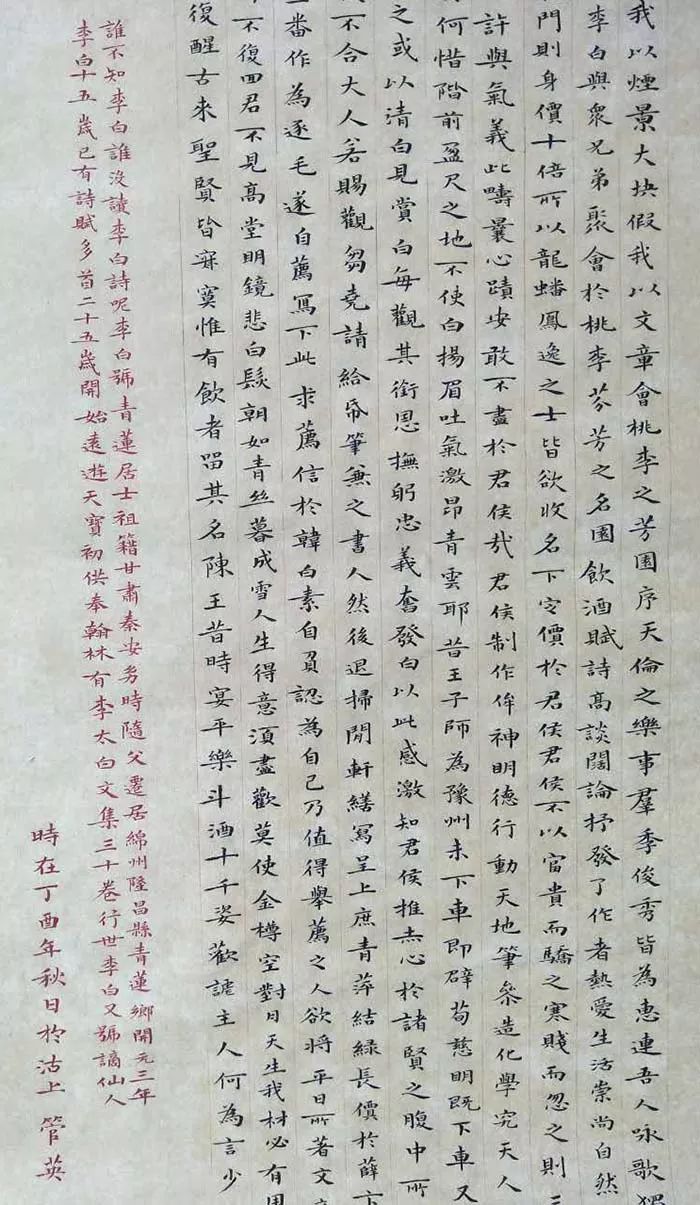 我以煙景大块假我以文章會桃李之芳園序天倫之樂事羣季俊秀皆為惠連吾人咏歌獨
李白與衆兄弟聚會於桃李芬芳之名園飲酒賦詩高談闊論抒發了作者熱愛生活崇尚自然
門則身價十倍所以龍蟠鳳逸之士皆欲收名下定價於君侯君侯不以富貴而驕之寒賤而忽之則三
許與氣義此疇曩心蹟安敢不盡於君侯哉君侯制作侔神明德行動天地筆參造化學究天人
何惜階前盈尺之地不使白揚眉吐氣激昂青雲耶昔王子師為豫州未下車即辟荀慈明既下車又
之或以清白見賞白每觀其銜恩撫躬忠義奮發白以此感激知君侯推赤心於諸賢之腹中所
不合大人若賜觀芻蕘請給帋筆兼之書人然後退掃閒軒繕寫呈上庶青萍結緑長價於薛卞
番作為逐毛遂自薦寫下此求薦信於韓白素自負認為自己乃值得舉薦之人欲將平日所著文
不復回君不見高堂明鏡悲白髮朝如青丝暮成雪人生得意須盡歡莫使金樽空對月天生我材必有用
復醒古来聖賢皆寂寞惟有飲者留其名陳王昔時宴平樂斗酒十千姿歡謔主人何為言少
誰不知李白誰没讀李白詩呢李白號青蓮居士祖籍甘肅秦安㓜時隨父遷居綿州隆昌縣青蓮鄉開元三年
李白十五歲已有詩賦多首二十五歲開始遠遊天寶初供奉翰林有李太白文集三十卷行世李白又號謫仙人
時在丁酉年秋日於沽上管英